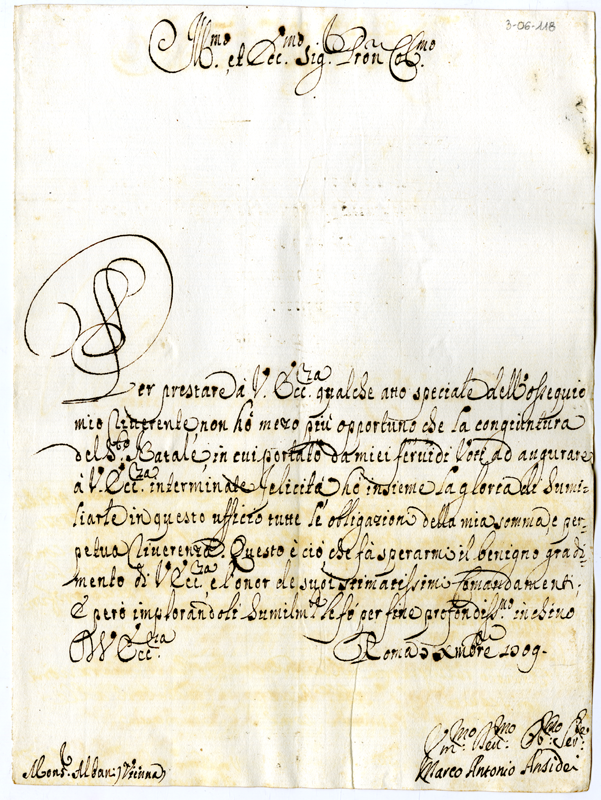 3-06-118
Ill.mo et Ecc.mo Sig. Pron Col.mo
Per prestare à V. Ecc.za qualche atto speciale dell'ossequio
mio riverente, non hò mezo più opportuno che la congiuntura
del S.to Natale, in cui portato da miei fervidi Voti, ad augurare
à V. Ecc.za interminate felicità hò insieme la gloria di humi-
liarle in questo ufficio tutte le obligazioni della mia somma, e per-
petua riverenza. Questo è ciò che fà sperarmi il benigno gradi-
mento di V. Ecc.za, e l'onor de suoi stimatissimi Comandamenti,
E però implorandoli humilm.te le fò per fine profondiss.mo inchino
Di V. Ecc.za Roma Xmbre 1709.
Mons.r Albani, Vienna
Um.mo Dev.mo Obb.mo Ser.re
Marco Antonio Ansidei